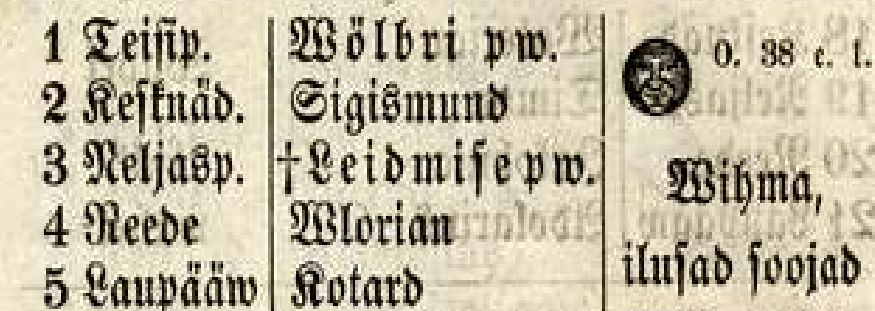 1 Teisip. Wölbri pw. O. 38 e. l.
2 Kesknäd. Sigismund
3 Neljasp. †Leidmise pw. Wihma,
4 Reede Wlorian
5 Laupääw Kotard ilusad soojad